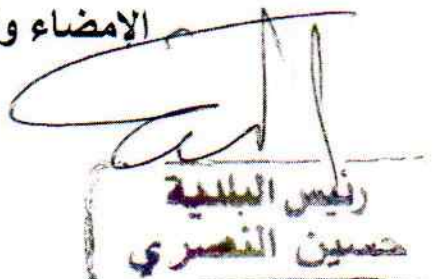 الإمضاء و
رئيس البلدية
حسين النصري